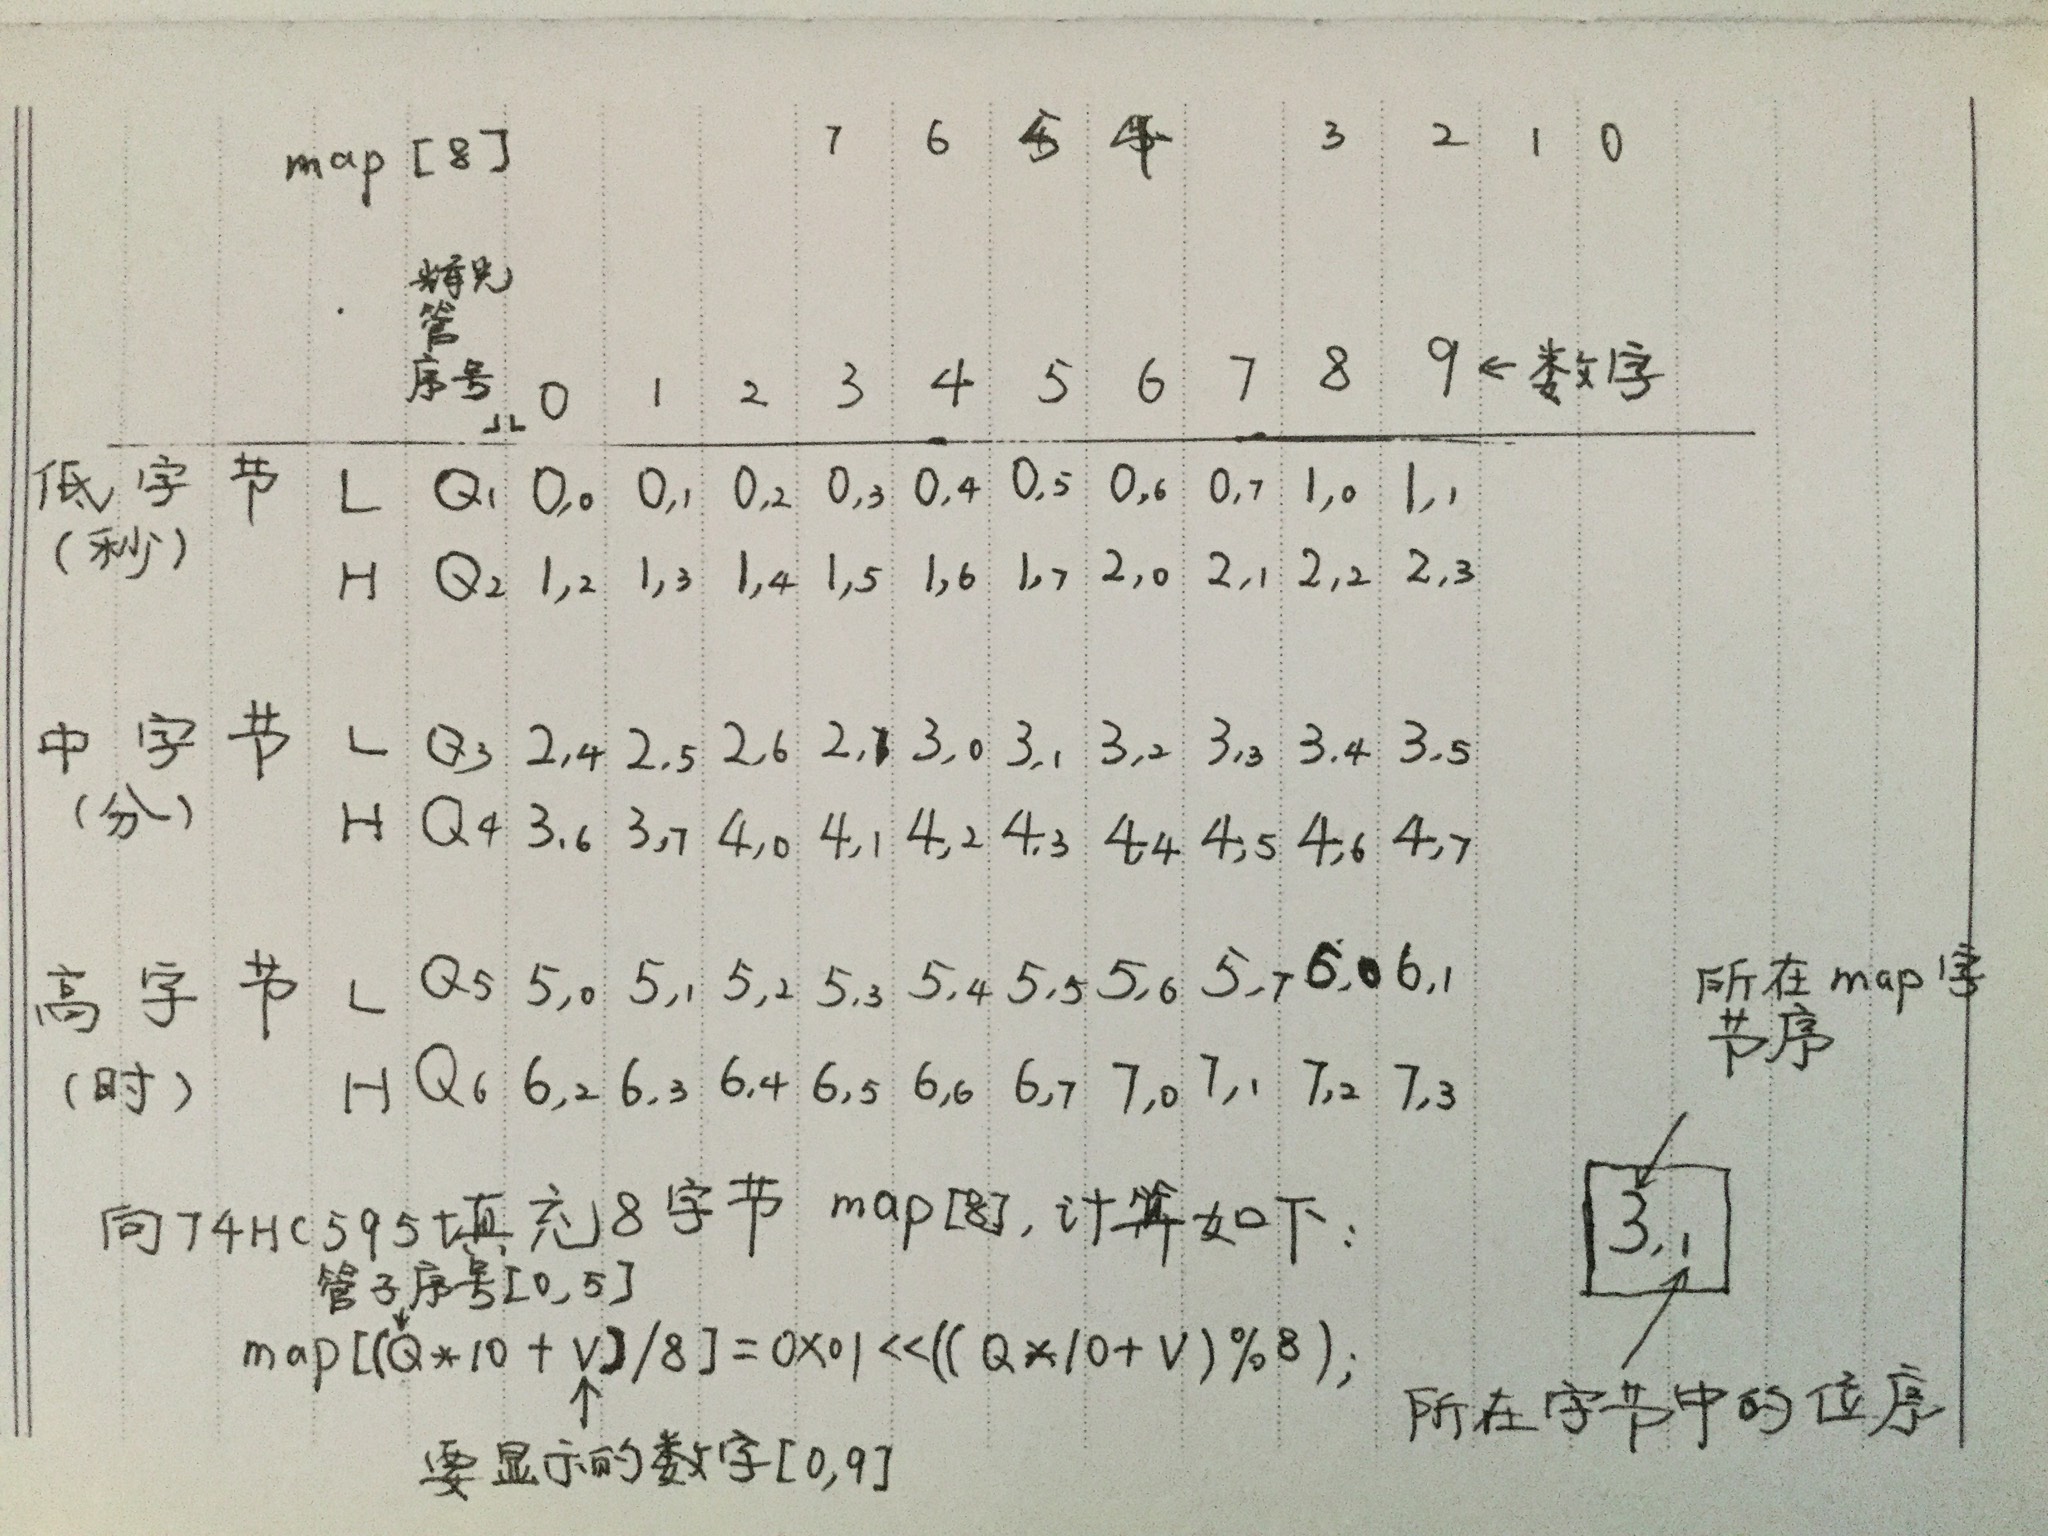 map [8] 7 6 5 4 3 2 1 0
辉光
管
序号 0 1 2 3 4 5 6 7 8 9 ← 数字
低字节 L Q1 0,0 0,1 0,2 0,3 0,4 0,5 0,6 0,7 1,0 1,1
(秒) H Q2 1,2 1,3 1,4 1,5 1,6 1,7 2,0 2,1 2,2 2,3
中字节 L Q3 2,4 2,5 2,6 2,7 3,0 3,1 3,2 3,3 3,4 3,5
(分) H Q4 3,6 3,7 4,0 4,1 4,2 4,3 4,4 4,5 4,6 4,7
高字节 L Q5 5,0 5,1 5,2 5,3 5,4 5,5 5,6 5,7 6,0 6,1
(时) H Q6 6,2 6,3 6,4 6,5 6,6 6,7 7,0 7,1 7,2 7,3
所在map字
节序
3,1
所在字节中的位序
向74HC595填充8字节 map[8],计算如下:
管子序号[0,5]
map[(Q*10+V)/8]=0X01<<((Q*10+V)%8);
要显示的数字[0,9]